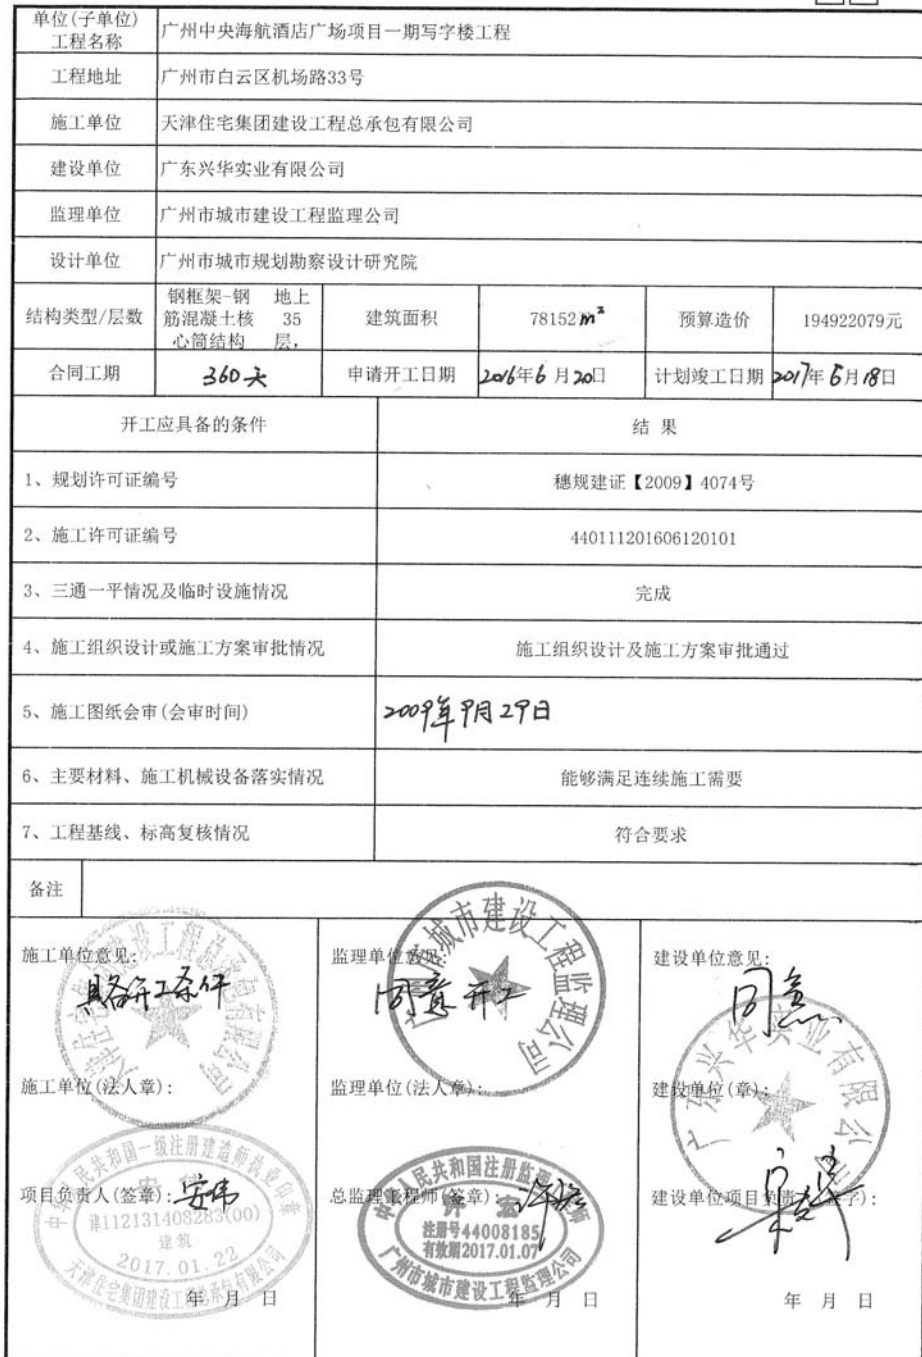 单位(子单位)
工程名称
广州中央海航酒店广场项目一期写字楼工程
工程地址
广州市白云区机场路33号
施工单位
天津住宅集团建设工程总承包有限公司
建设单位
广东兴华实业有限公司
监理单位
广州市城市建设工程监理公司
设计单位
广州市城市规划勘察设计研究院
结构类型/层数
钢框架-钢
筋混凝土核
心筒结构
地上
35
层,
建筑面积
78152m²
预算造价
194922079元
合同工期
360天
申请开工日期
2016年6月20日
计划竣工日期
2017年6月18日
开工应具备的条件
结 果
1、规划许可证编号
穗规建证【2009】4074号
2、施工许可证编号
440111201606120101
3、三通一平情况及临时设施情况
完成
4、施工组织设计或施工方案审批情况
施工组织设计及施工方案审批通过
5、施工图纸会审(会审时间)
2009年9月29日
6、主要材料、施工机械设备落实情况
能够满足连续施工需要
7、工程基线、标高复核情况
符合要求
备注
施工单位意见:
具备开工条件
施工单位(法人章):
项目负责人(签章):
安伟
中华人民共和国一级注册建造师执业印章
津112131408283(00)
建筑
2017.01.22
天津住宅集团建设工程总承包有限公司
年 月 日
监理单位意见:
同意开工
广州市城市建设工程监理公司
监理单位(法人章):
总监理工程师(签章):
中华人民共和国注册监理工程师
许宏
注册号44008185
有效期2017.01.07
广州市城市建设工程监理公司
年 月 日
建设单位意见:
同意
广东兴华实业有限公司
建设单位(章):
建设单位项目负责人(签字):
年 月 日